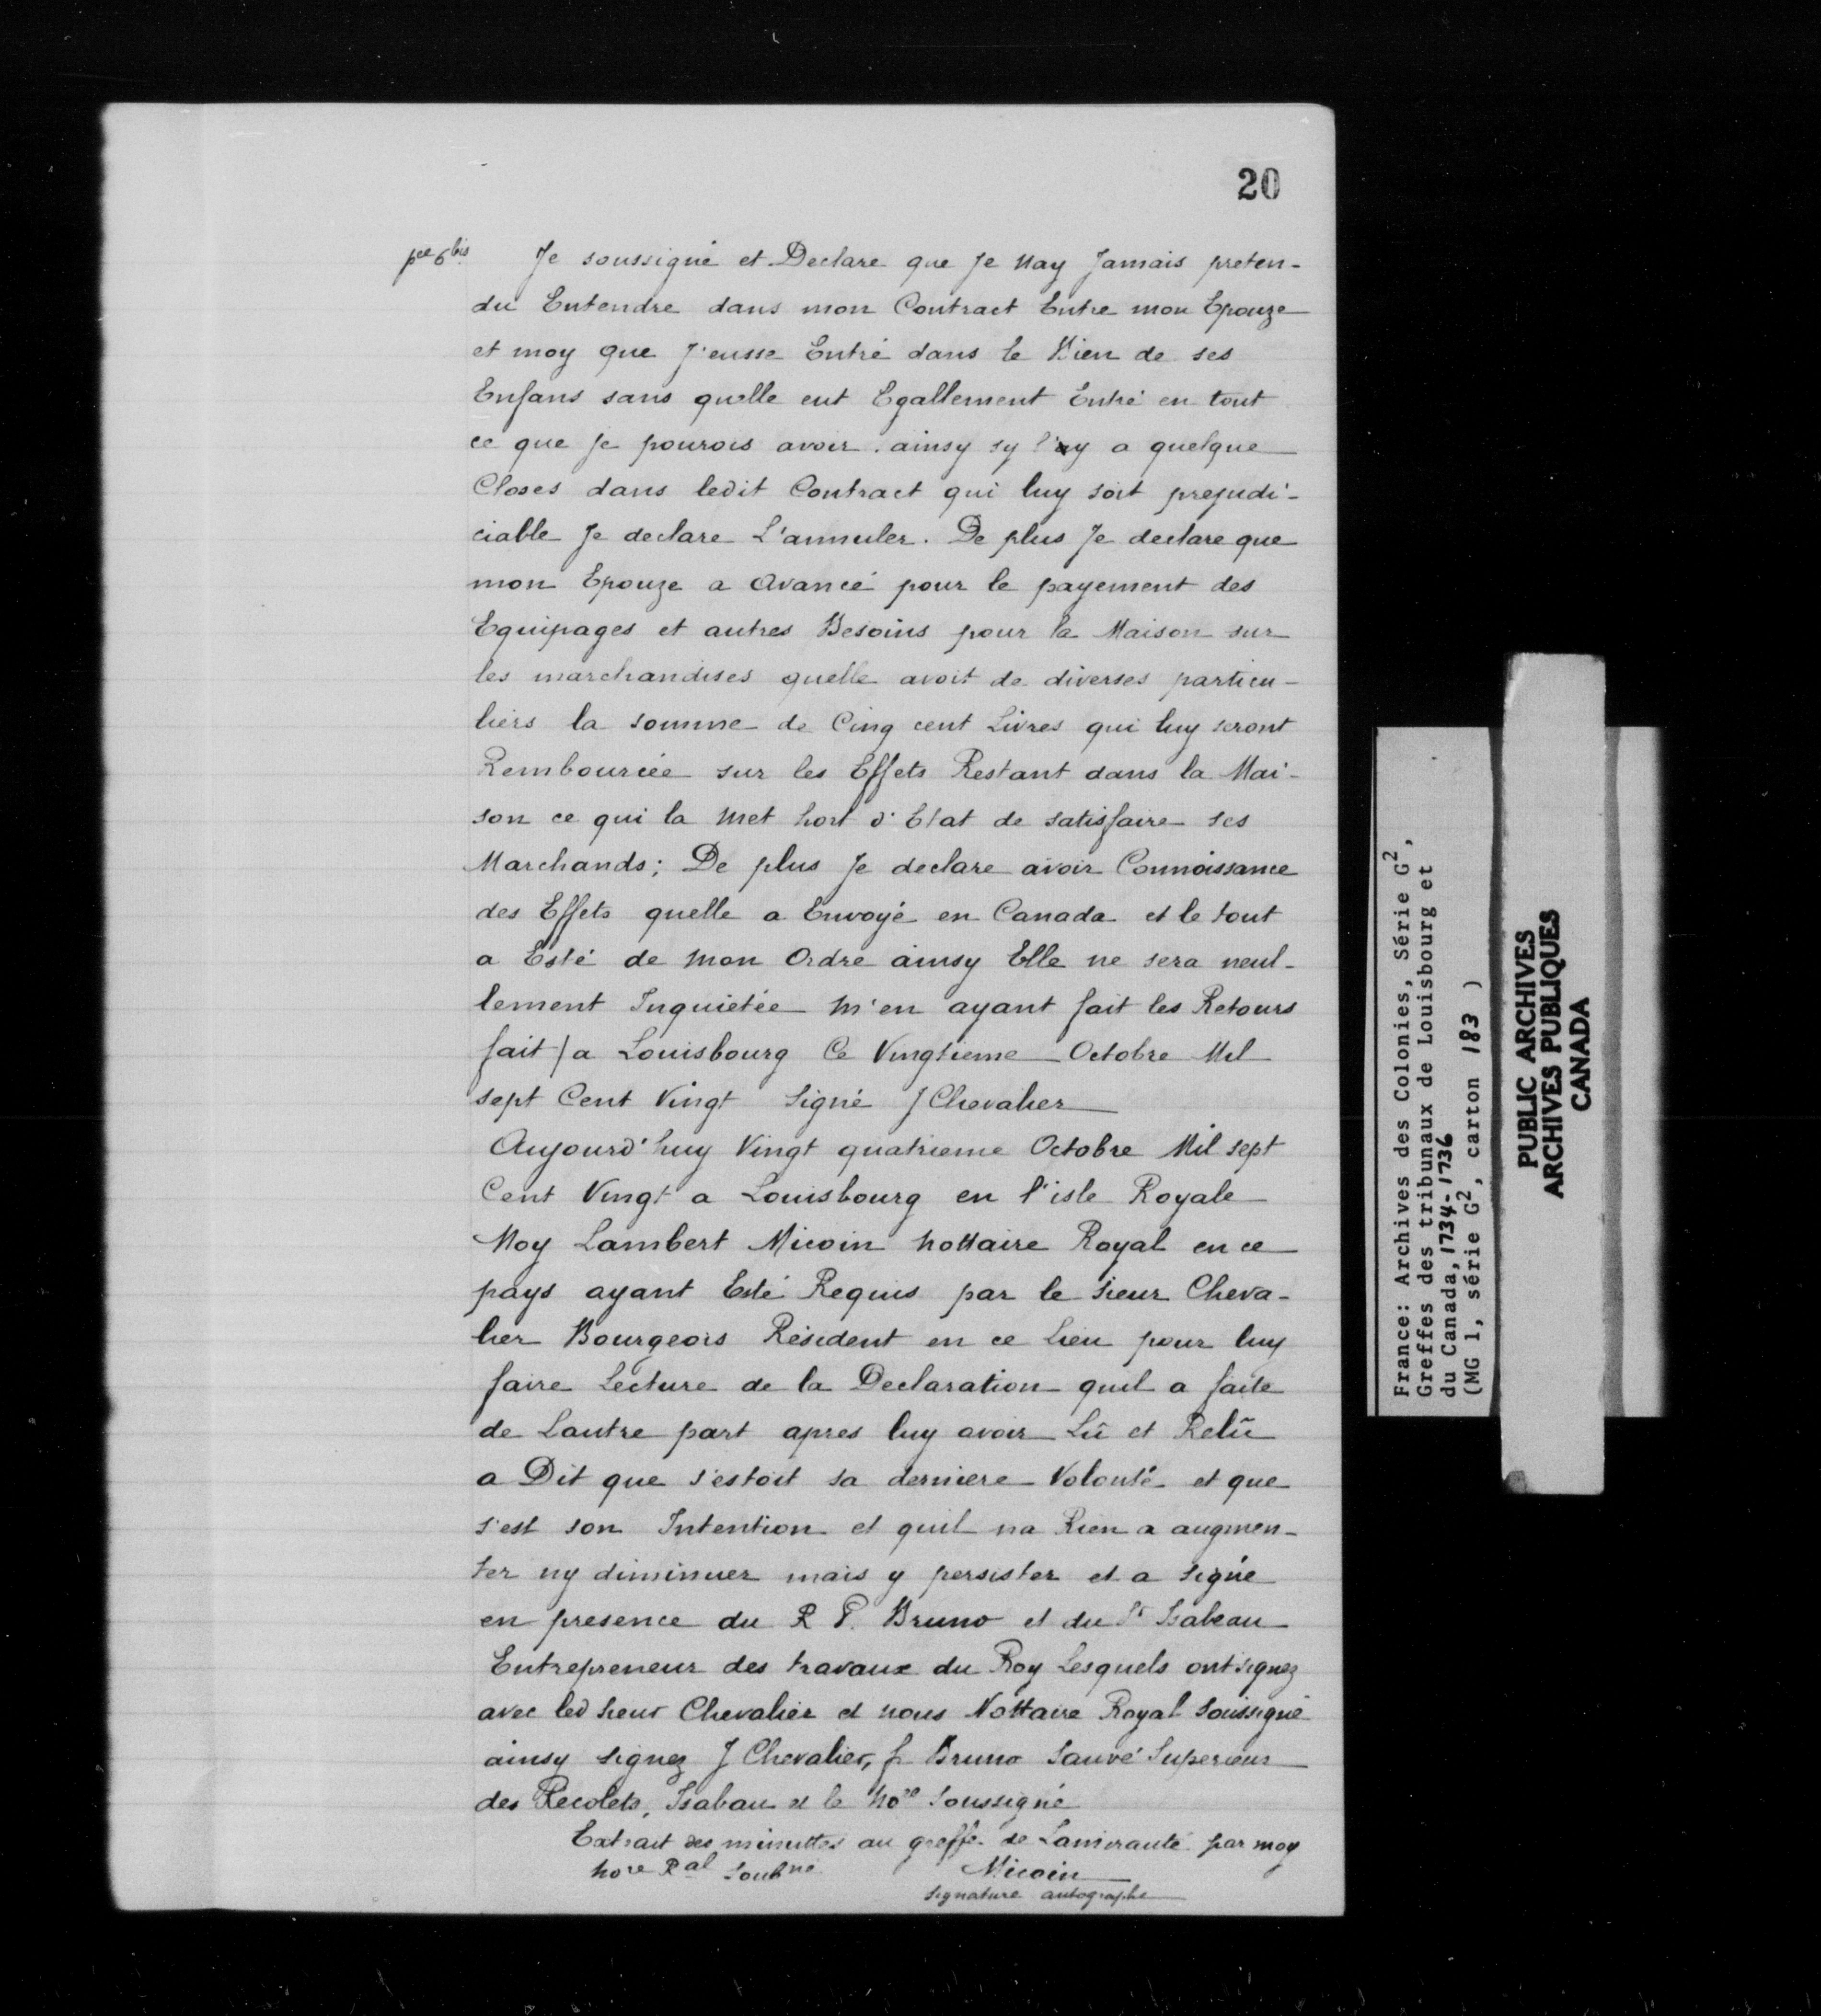 20
pce 6 bis Je soussigné et Declare que Je Nay Jamais preten-
du Entendre dans mon Contract Entre mon Epouze
et moy que J'eusse Entré dans le Bien de ses
Enfans sans quelle eut Egallement Entré en tout
ce que Je pourois avoir. ainsy sy l'y a quelque
Closes dans ledit Contract qui luy soit prejudi-
ciable Je declare L'annuler. De plus Je declare que
mon Epouze a Avancé pour le payement des
Equipages et autres Besoins pour la Maison sur
les marchandises quelle avoit de diverses particu-
liers la somme de Cinq cent Livres qui luy seront
Rembourcée sur les Effets Restant dans la Mai-
son ce qui la met hort d'Etat de satisfaire ses
Marchands; De plus Je declare avoir Connoissance
des Effets quelle a Envoyé en Canada et le tout
a Esté de mon Ordre ainsy Elle ne sera neul-
lement Inquietée M'en ayant fait les Retours
fait / a Louisbourg Ce Vingtieme Octobre Mil
sept Cent Vingt Signé J Chevalier
Aujourd'huy Vingt quatrieme Octobre Mil sept
Cent Vingt a Louisbourg en l'isle Royale
Moy Lambert Micoin nottaire Royal en ce
pays ayant Esté Requis par le Sieur Cheva-
lier Bourgeois Résident en ce Lieu pour luy
faire Lecture de la Declaration quil a faite
de Lautre part apres luy avoir Lû et Relû
a Dit que s'estoit sa derniere Volonté et que
s'est son Intention et quil na Rien a augmen-
ter ny diminuer mais y persister et a Signé
en presence du R P. Bruno et du Sr Isabeau
Entrepreneur des travaux du Roy Lesquels ont signez
avec led Sieur Chevalier et nous Nottaire Royal Soussigné
ainsy signez J Chevalier, f. Bruno Sauvé Superieur
des Recolets, Isabau et le Nore Soussigné
Extrait des minuttes au greffe de Lamirauté par moy
Nore Ral Soubné Micoin
Signature autographe
France: Archives des Colonies, Série G2,
Greffes des tribunaux de Louisbourg et
du Canada, 1734-1736
(MG 1, série G2, carton 183 )
PUBLIC ARCHIVES
ARCHIVES PUBLIQUES
CANADA